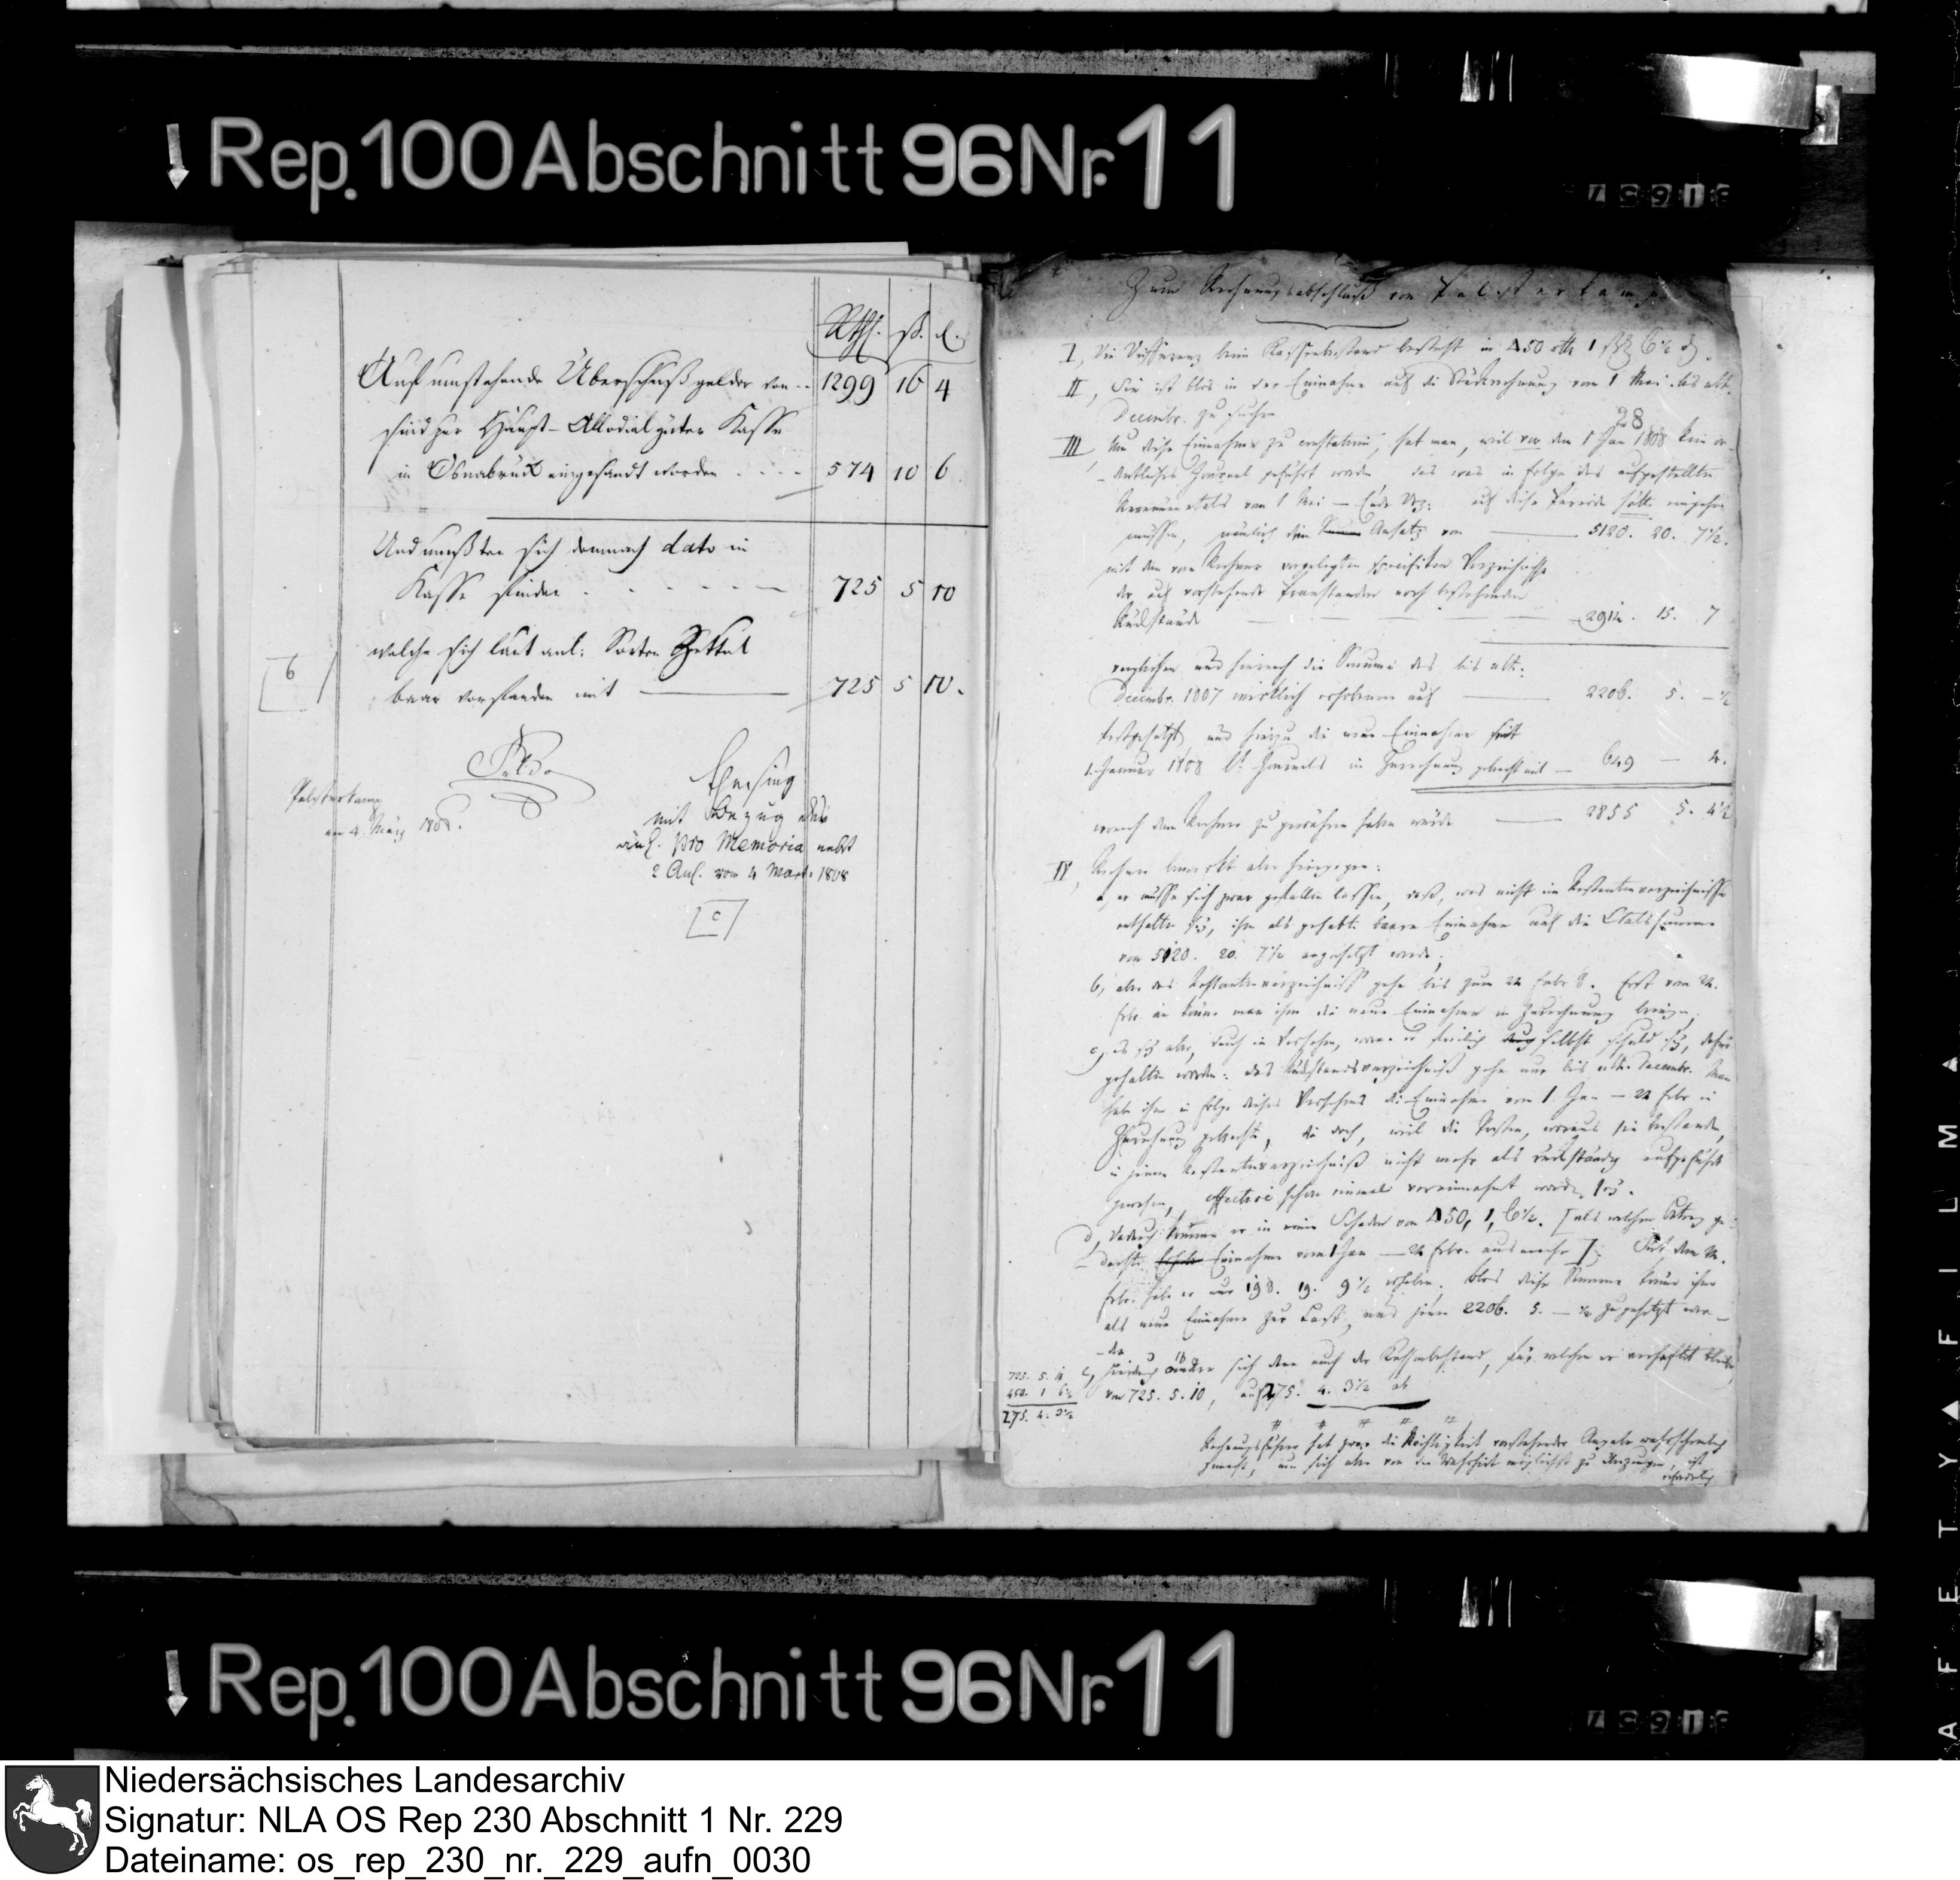 Rep. 100 Abschnitt 96 Nr. 11
Rthl. ß. d.
Auf umstehende Überschußgelder von .. 1299 16 4
sind zur Haupt-Allodialgüter Kasse
in Osnabrück eingesandt worden .... 574 10 6
Und mußten sich demnach dato in
Kasse finden . . . . 725 5 10
welche sich laut anl: Sorten Zettel
b
baar vorfanden mit 725 5 10.
Palsterkamp
am 4. März 1808.
mit Bezug
anl. pro Memoria nebst
2 Anl. vom 4 Mart. 1808
c
Zum Rechnungsabschluß von Palsterkamp
I, Die Differenz beim Kassenbestand besteht in 450 rth 1 ßl 6½ d.
II, Sie ist blos in der Einnahme auf die Stückrechnung vom 1 Mai bis ult.
Decembr. zu suchen
28
III, Um diese Einnahme zu constatiren, hat man, weil vor dem 1 Jan 1808 kein or-
dentliches Journal geführt worden, das was in Folge des aufgestellten
vom 1 Mai — Ende auf diese Periode hätte eingehen
müssen, nämlich den Ansatz von 5120. 20. 7½.
mit dem vom Rechner vorgelegten Verzeichnisse
der auf vorstehende noch bestehenden
Rückstände 2914. 15. 7
verglichen und hiernach die Summe des bis ult.
Decembr. 1807 wirklich erhobenen auf 2206. 5. — ½
festgesetzt, und hiezu die neue Einnahme seit
1. Januar 1808 in Zurechnung gebracht mit — 649 — 4.
wonach dem Rechner zu haben würde 2855 5. 4½
IV, Rechner bemerkt aber hingegen:
a, er müsse sich zwar gefallen lassen, daß, was nicht im Restantenverzeichnisse
enthalten sey, ihm als gehabte baare Einnahme auf die Etatssumme
von 5120. 20. 7½ angesetzt werde;
b, aber das Restantenverzeichniß gehe bis zum 24 Febr 8. Erst vom 24.
Febr an könne man ihm die neue Einnahme in Zurechnung bringen,
c, es sey aber, durch ein Versehen, woran er freilich selbst schuld sey, dafür
gehalten worden: das Rückstandsverzeichniß gehe nur bis ult. Decembr. Man
habe ihm in Folge dieses Versehens die Einnahme vom 1. Jan — 24 Febr in
Zurechnung gebracht, die doch, weil die Posten, woraus sie bestanden,
in jenem Restantenverzeichniß nicht mehr als rückständig aufgeführt
gewesen, effective schon einmal vereinnahmt worden sey.
d, dadurch komme er in einen Schaden von 450, 1, 6½. [als welchen Betrag ge-
dachte Einnahme vom 1 Jan — 24 Febr. ausmache]; Seit dem 24.
Febr. habe er nur 198. 19. 9½ erhoben. Blos diese Summe könne ihm
als neue Einnahme zur Last, und jenen 2206. 5. — ½ zugesetzt wer-
den
e, hiernach ändere sich denn auch der Kassenbestand, für welchen er verhaftet bleibe,
von 725. 5. 10, auf 275. 4. 3½ ab
725. 5. 10
450. 1 6½
275. 4. 3½
Rechnungsführer hat zwar die Richtigkeit vorstehender Angabe wahrscheinlich
gemacht, um sich aber von der Wahrheit möglichst zu überzeugen, ist
erforderlich
Rep. 100 Abschnitt 96 Nr. 11
Niedersächsisches Landesarchiv
Signatur: NLA OS Rep 230 Abschnitt 1 Nr. 229
Dateiname: os_rep_230_nr._229_aufn_0030